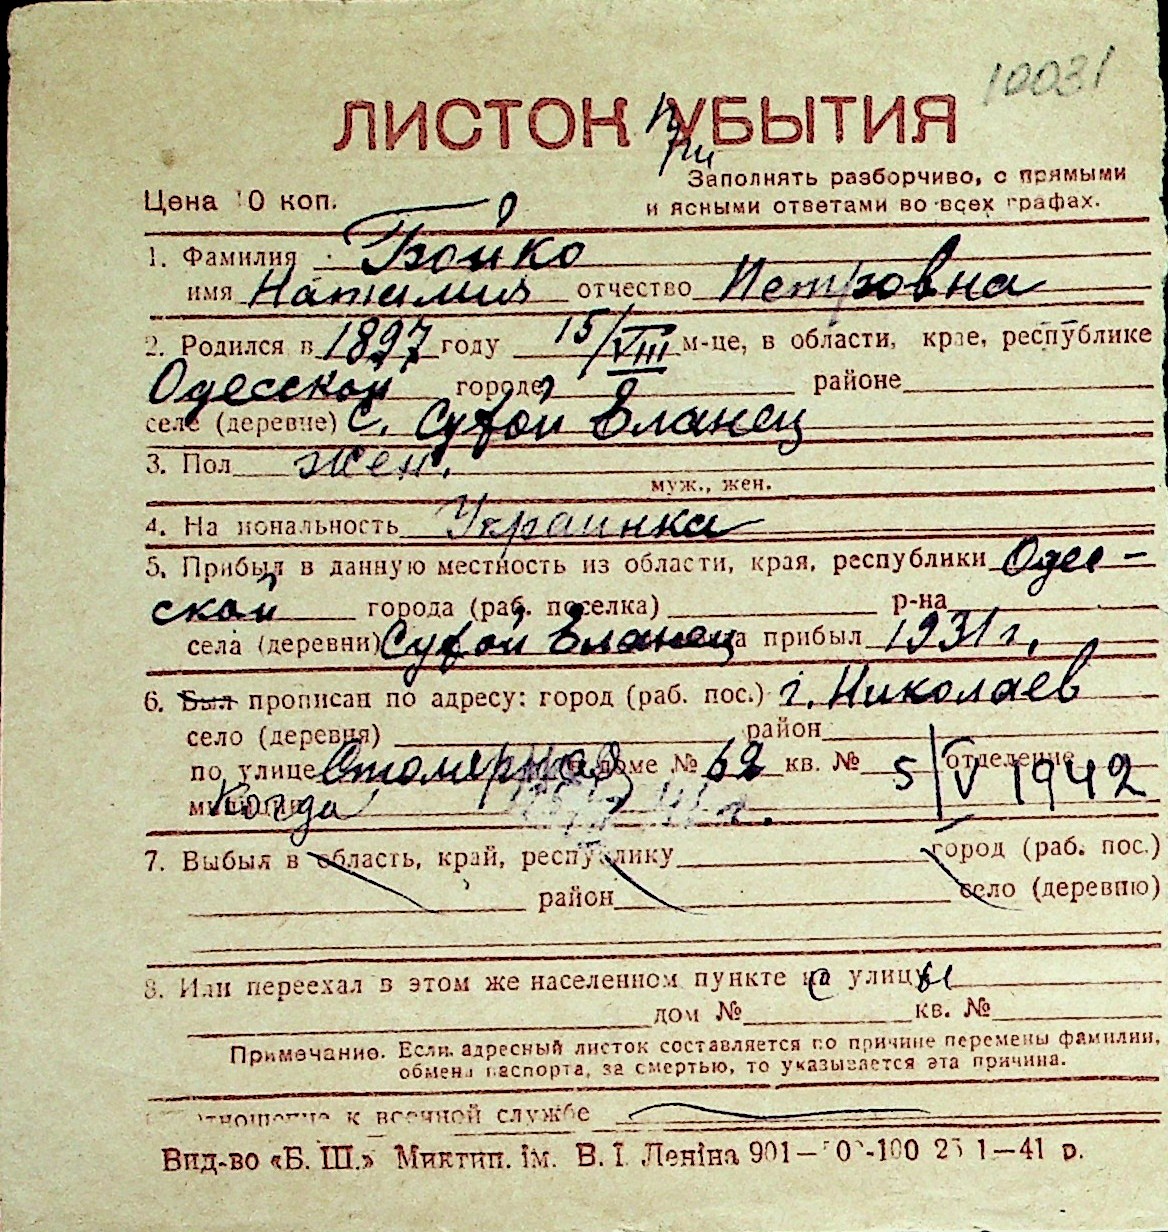 10031
ЛИСТОК При УБЫТИЯ
Заполнять разборчиво, с прямыми
Цена 10 коп. и ясными ответами во всех графах.
1. Фамилия Бойко
имя Наталия отчество Петровна
2. Родился в 1897 году 15/VIII м-це, в области, крае, республике
Одесской городе районе
селе (деревне) с. Сухой Еланец
3. Пол жен.
муж., жен.
4. На иональность Украинка
5. Прибыл в данную местность из области, края, республики Одес-
ской города (раб. поселка) р-на
села (деревни) Сухой Еланец прибыл 1931 г.
6. Был прописан по адресу: город (раб. пос.) г. Николаев
село (деревня) район
по улице Столярная доме № 62 кв. № отделение
Когда 5/V 1942
7. Выбыл в область, край, республику город (раб. пос.)
район село (деревню)
8. Или переехал в этом же населенном пункте с улицы
дом № кв. №
Примечание. Если адресный листок составляется по причине перемены фамилии,
обмена паспорта, за смертью, то указывается эта причина.
отношение к военной службе
Вид-во «Б. Ш.» Миктип. ім. В. І. Леніна 901— 100 1—41 р.